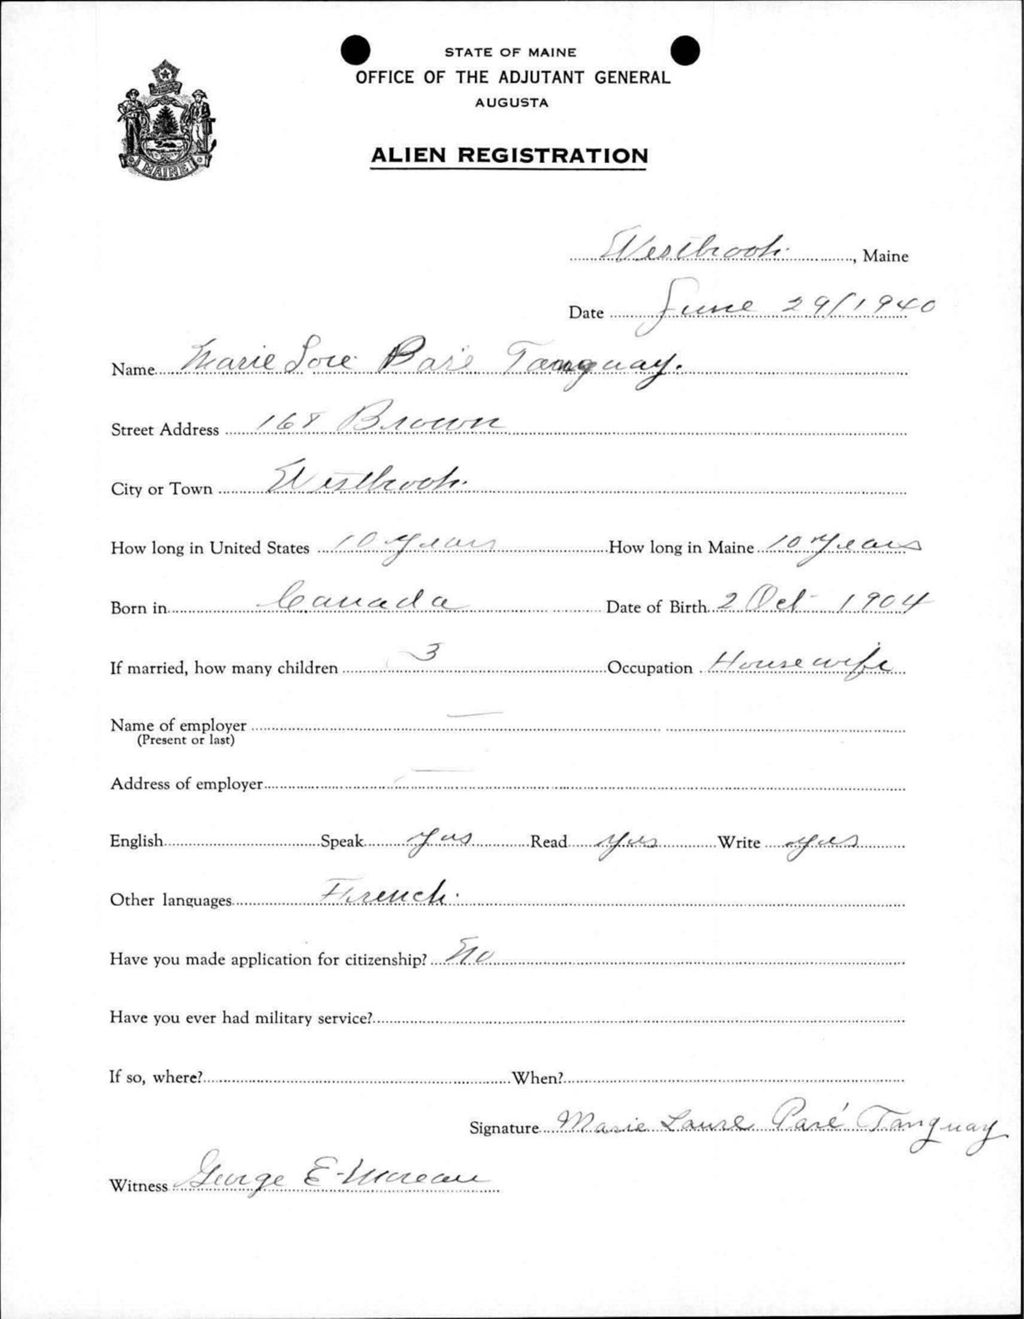 STATE OF MAINE
OFFICE OF THE ADJUTANT GENERAL
AUGUSTA
MAINE
ALIEN REGISTRATION
Westbrook, Maine
Date June 29/1940
Name Marie Lore Paré Tanguay.
Street Address 168 Brown
City or Town Westbrook.
How long in United States 10 years How long in Maine 10 years
Born in Canada Date of Birth 2 Oct 1904
If married, how many children 3 Occupation Housewife
Name of employer —
(Present or last)
Address of employer —
English Speak yes Read yes Write yes
Other languages French.
Have you made application for citizenship? No
Have you ever had military service?
If so, where? When?
Signature Marie Laure Paré Tanguay
Witness George E. Moreau